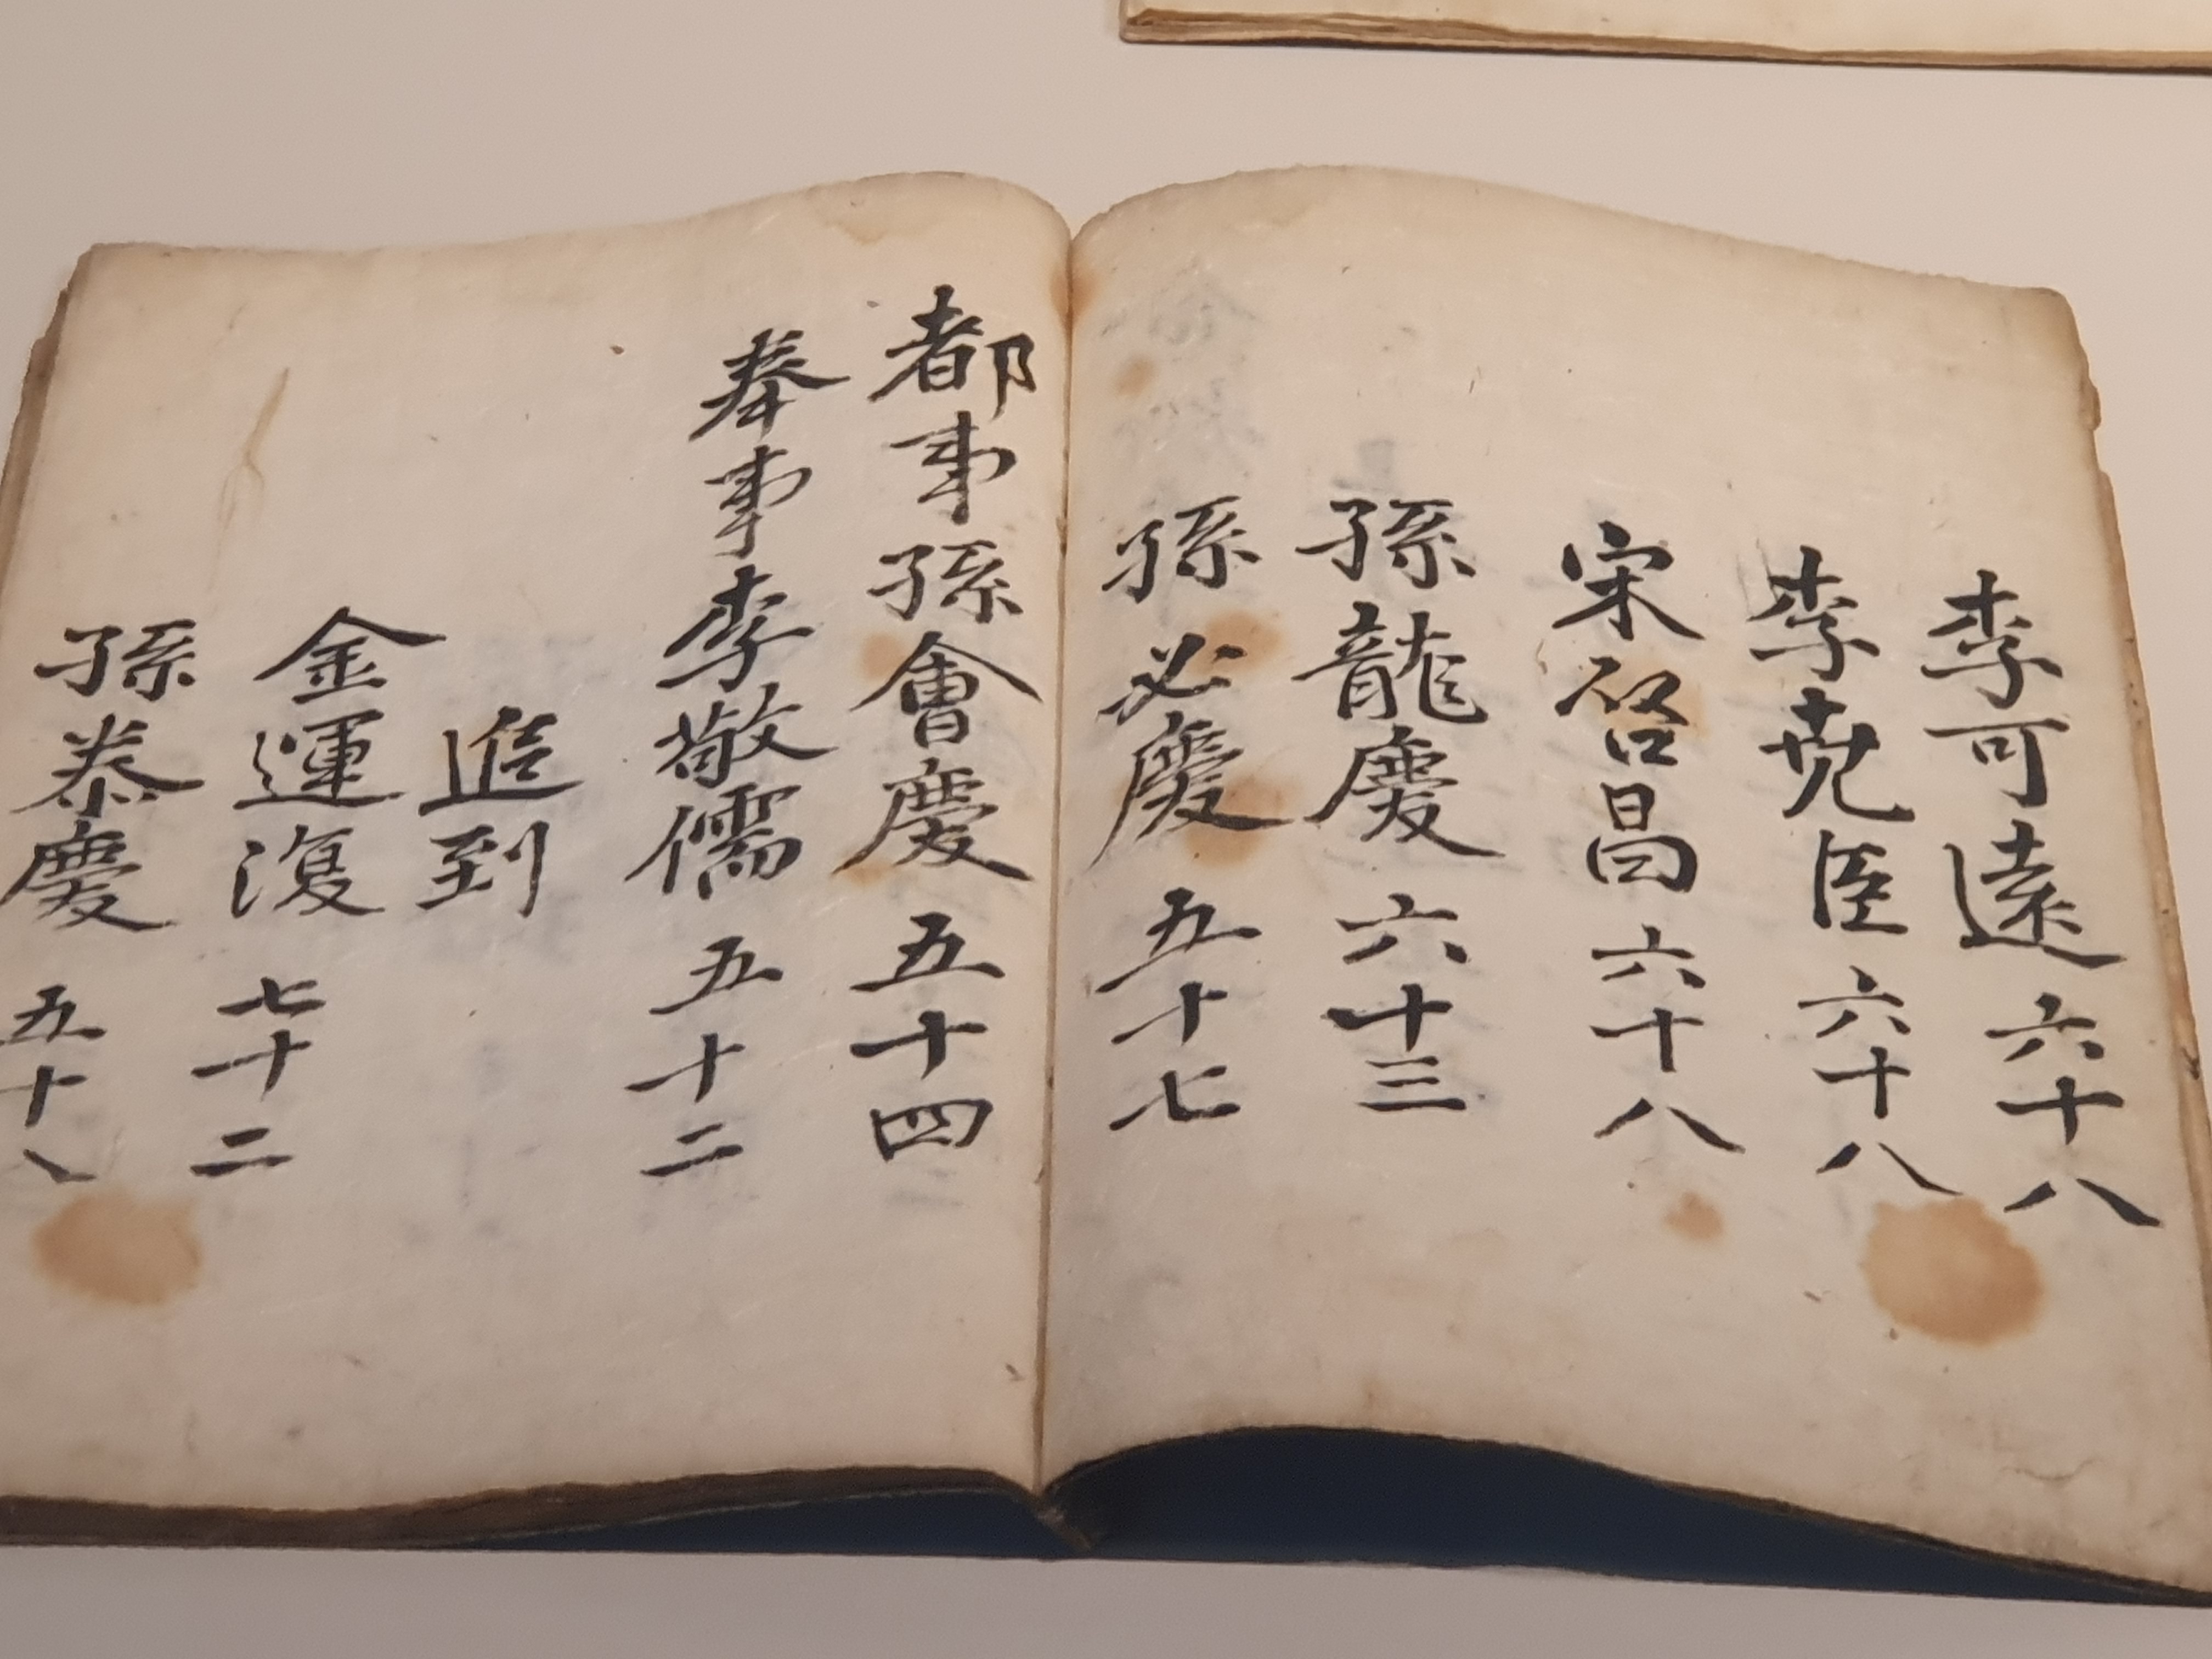 李可遠六十八
李尭臣六十八
宋啓昌六十八
孫龍慶六十三
孫必慶五十七
都事孫會慶五十四
奉事李敬儒五十二
追到
金運復七十二
孫泰慶五十八